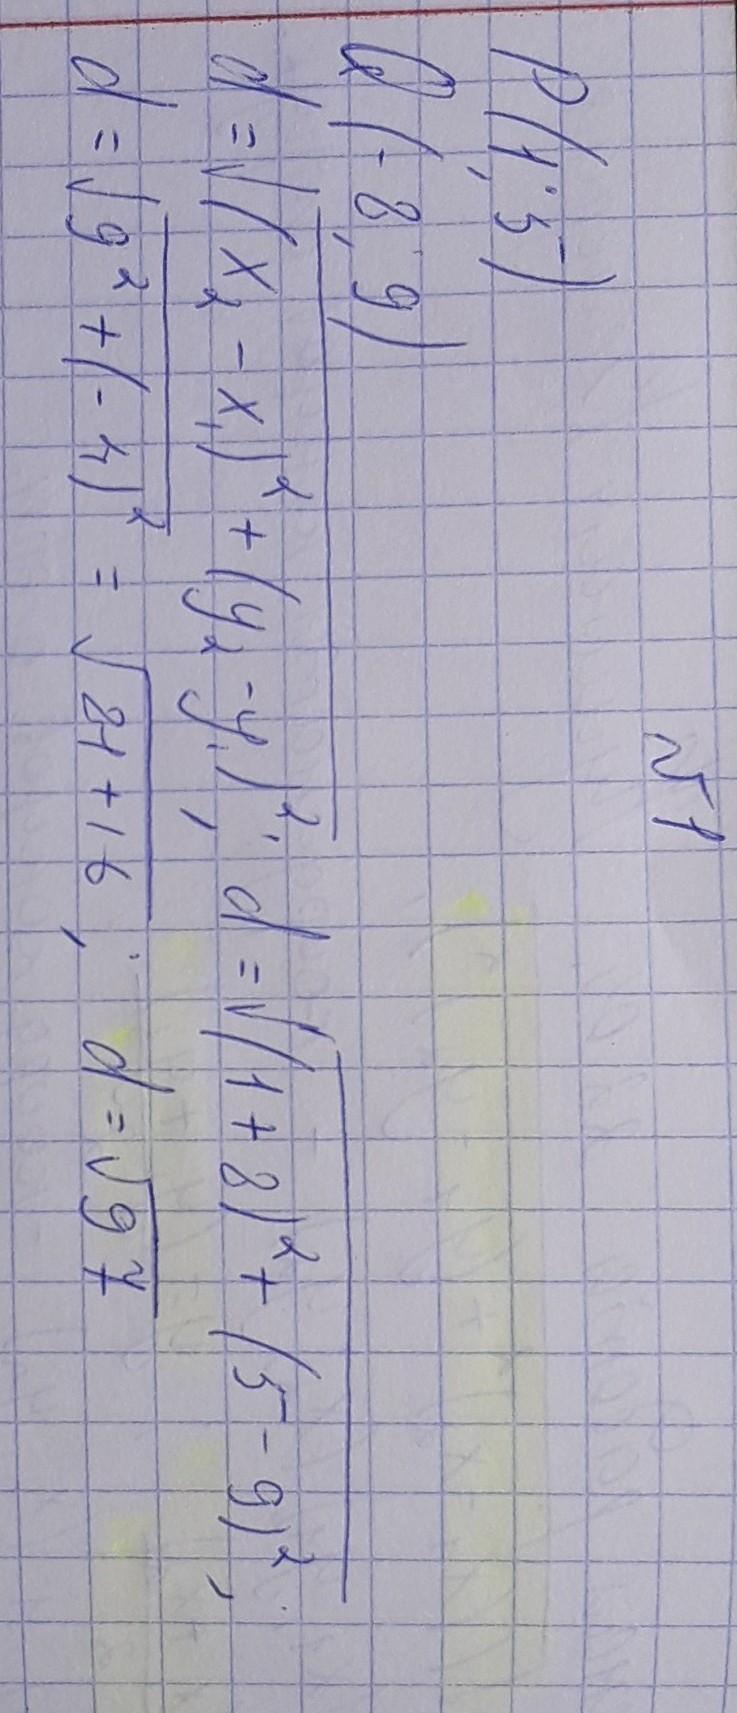 №1
P(1; 5)
Q(-8; 9)
d = √(x₂ - x₁)² + (y₂ - y₁)²; d = √(1 + 8)² + (5 - 9)²;
d = √9² + (-4)² = √81 + 16; d = √97